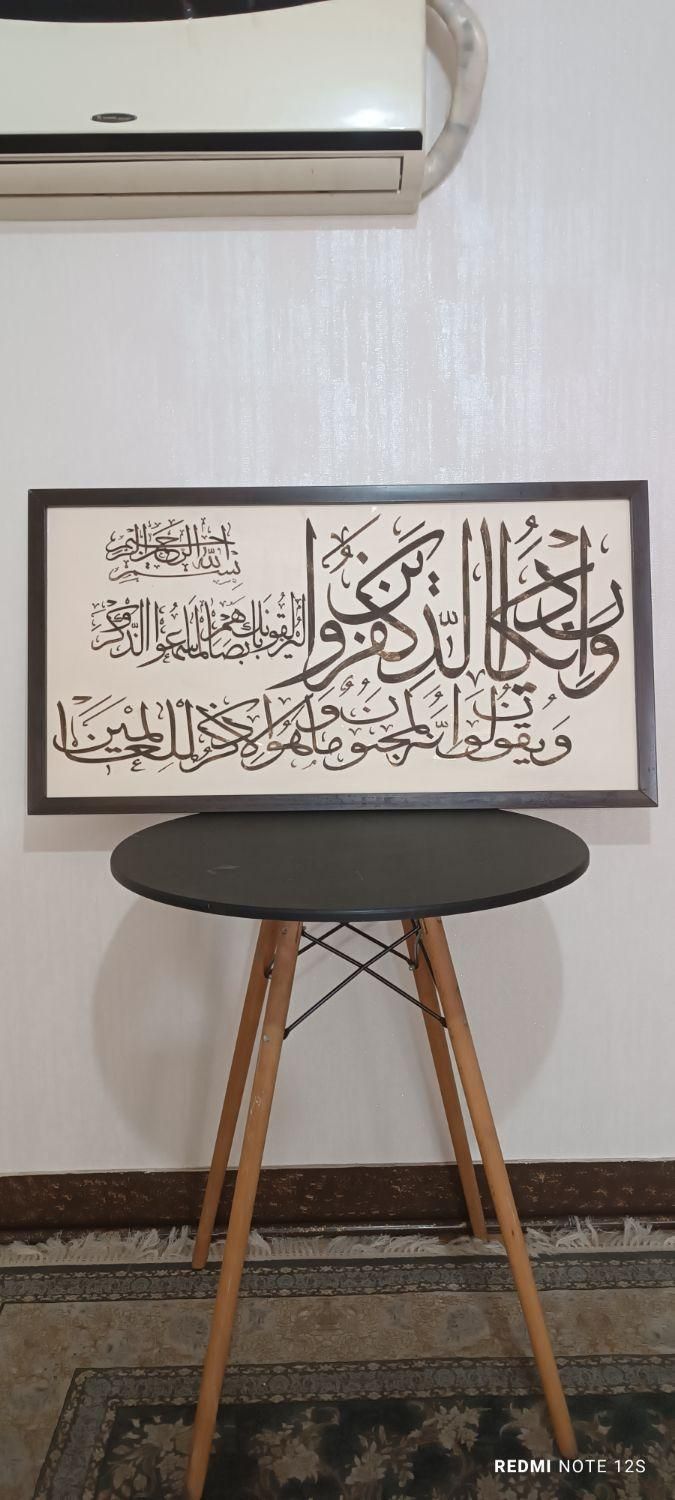 بسم الله الرحمن الرحيم
وان يكاد الذين كفروا
ليزلقونك بابصارهم لما سمعوا الذكر
ويقولون انه لمجنون وما هو الا ذكر للعالمين
REDMI NOTE 12S